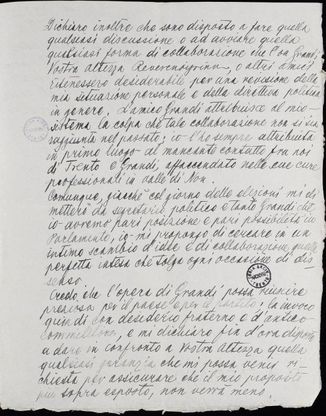 Dichiaro inoltre che sono disposto a fare quella
qualsiasi discussione o ad avviare quella
qualsiasi forma di collaborazione che l'on. Grandi,
Vostra Altezza Reverendissima, o altri amici
ritenessero desiderabile per una revisione della
mia situazione personale e della direttiva politica
in genere. L'amico Grandi attribuisce al mio
sistema la colpa che tale collaborazione non si sia
raggiunta nel passato; io l'ho sempre attribuita
in primo luogo al mancante contatto fra noi
di Trento e Grandi, affaccendato nelle sue cure
professionali in valle di Non.
Comunque, giacchè col giorno delle elezioni mi di-
metterò da segretario politico e tanto Grandi che
io avremo pari posizione e pari possibilità in
Parlamento, io mi propongo di cercare in un
intimo scambio d'idee e di collaborazione quella
perfetta intesa che tolga ogni occasione di dis-
senso.
Credo, che l'opera di Grandi possa riuscire
preziosa per il paese e per il partito; la invoco
quindi con desiderio fraterno e d'antico
commilitone, e mi dichiaro fin d'ora disposto
a dare in confronto a Vostra Altezza quella
qualsiasi garanzia che mi possa venir ri-
chiesta per assicurare che il mio proposito
più sopra esposto, non verrà meno.